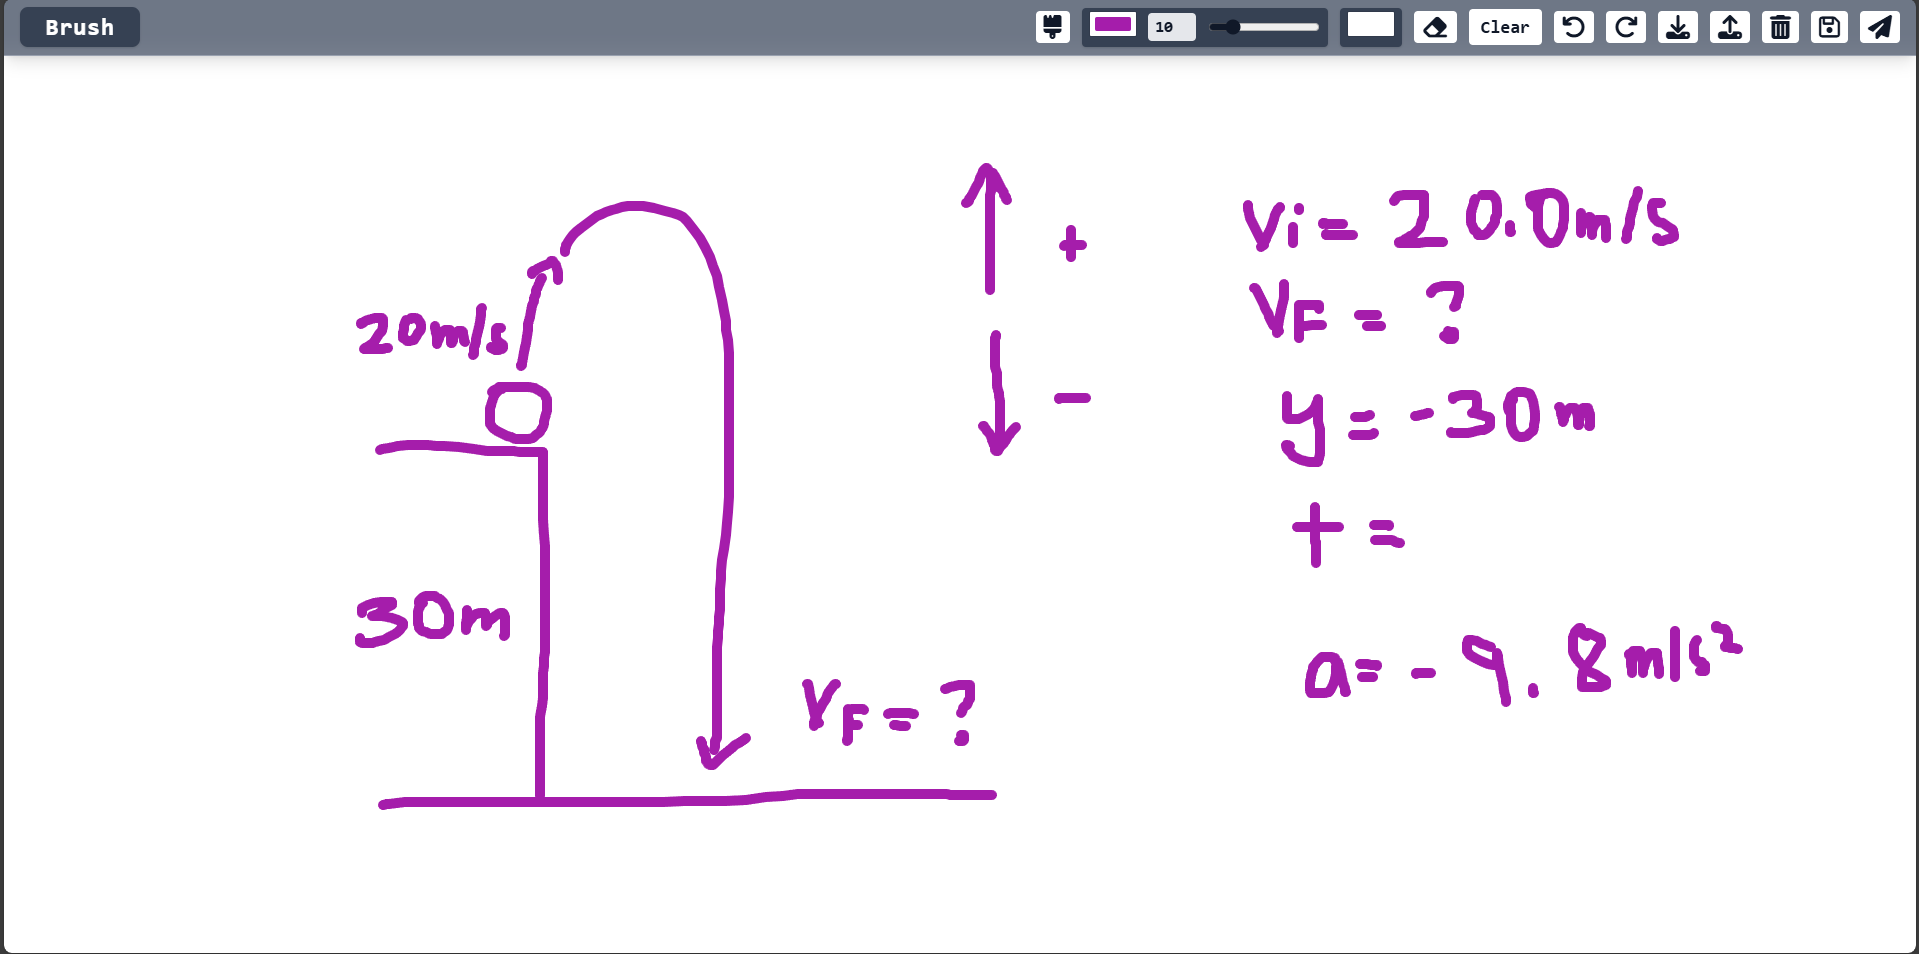 Brush
10
Clear
20m/s
30m
VF = ?
+
-
Vi = 20.0m/s
VF = ?
y = -30m
t =
a = -9.8m/s²